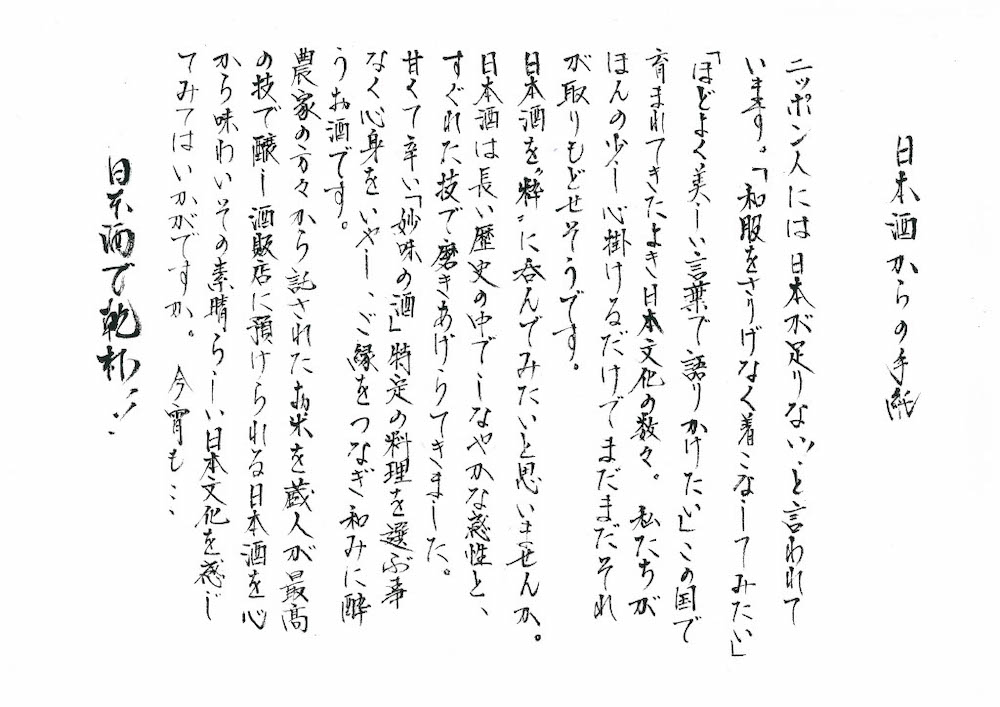 日本酒からの手紙
ニッポン人には日本が足りない、と言われて
います。「和服をさりげなく着こなしてみたい」
「ほどよく美しい言葉で語りかけたい」この国で
育まれてきたよき日本文化の数々。私たちが
ほんの少し心掛けるだけでまだまだそれ
が取りもどせそうです。
日本酒を〝粋〟に呑んでみたいと思いませんか。
日本酒は長い歴史の中でしなやかな感性と、
すぐれた技で磨きあげらてきました。
甘くて辛い「妙味の酒」特定の料理を選ぶ事
なく心身をいやし、ご縁をつなぎ和みに酔
うお酒です。
農家の方々から託されたお米を蔵人が最高
の技で醸し酒販店に預けられる日本酒を心
から味わいその素晴らしい日本文化を感じ
てみてはいかがですか。今宵も…
日本酒で乾杯!!